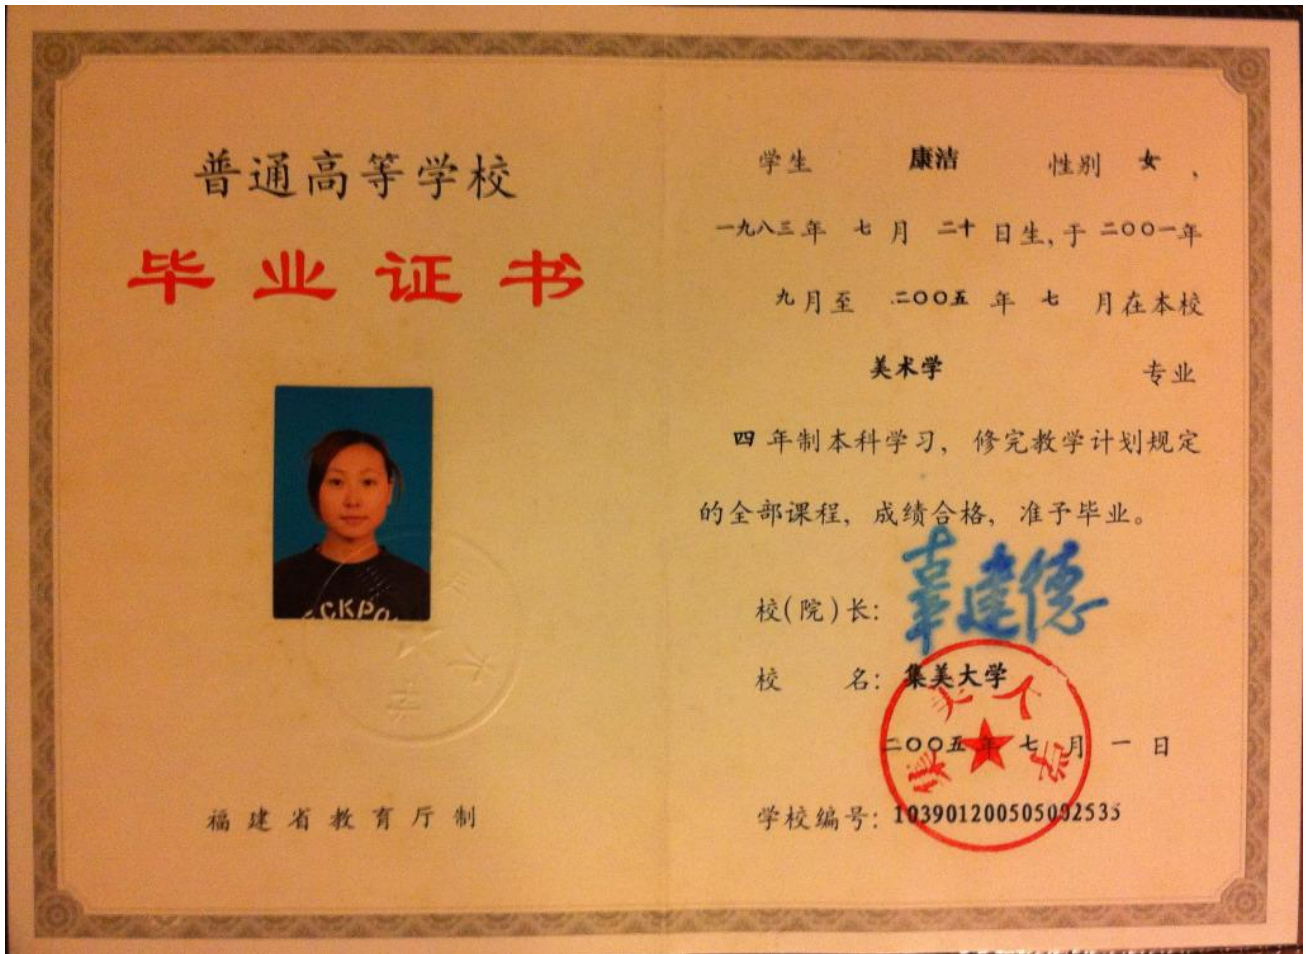 普通高等学校
毕业证书
CKPO
福建省教育厅制
学生 康洁 性别 女 ,
一九八三年 七月 二十日生,于二〇〇一年
九月至 二〇〇五年 七月在本校
美术学 专业
四年制本科学习, 修完教学计划规定
的全部课程, 成绩合格, 准予毕业。
校(院)长: 辜建德
校 名: 集美大学
二〇〇五年七月一日
学校编号: 103901200505002535
集美大学